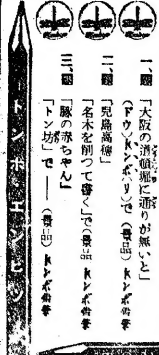 一、題
「大阪の道頓堀に通りが無いと」
(ドウ)トンボリ)で(景品)トンボ鉛筆
二、題
「児島高徳」
「名木を削つて書く」で(景品)トンボ鉛筆
三、題
「豚の赤ちやん」
「トン坊」で――(景品)トンボ鉛筆
トンボエンピツ